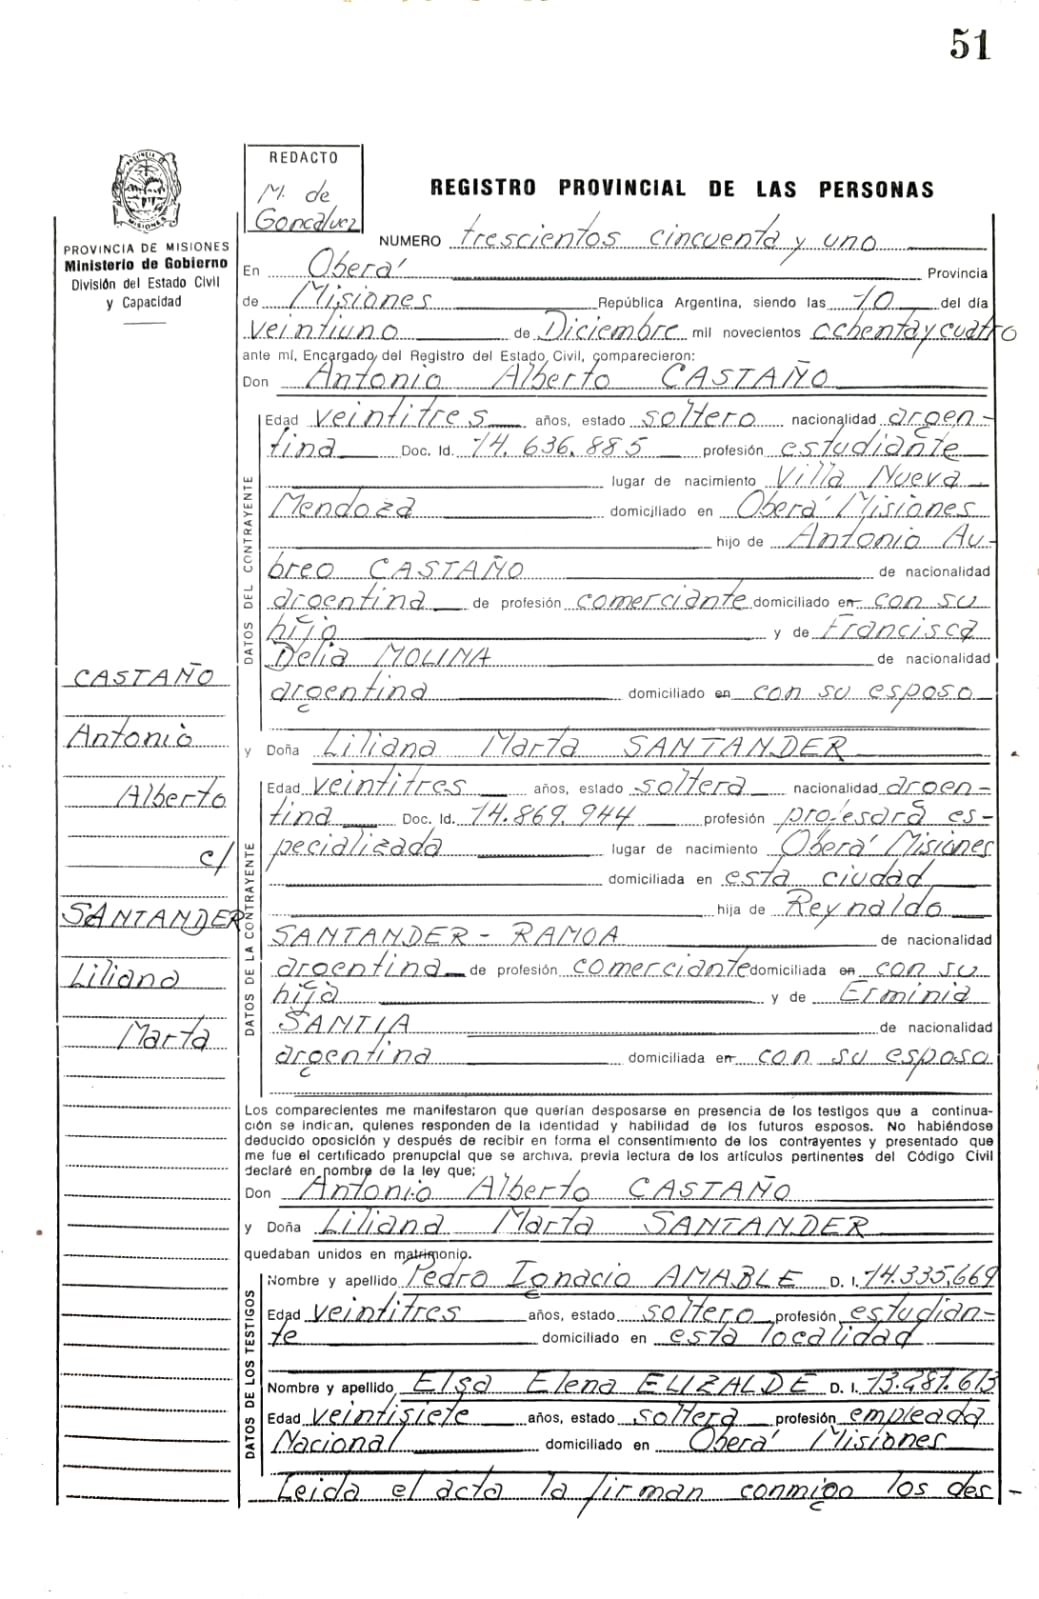 51
REDACTO
M. de
Goncalvez
REGISTRO PROVINCIAL DE LAS PERSONAS
PROVINCIA DE MISIONES
Ministerio de Gobierno
División del Estado Civil
y Capacidad
NUMERO trescientos cincuenta y uno
En Oberá Provincia
de Misiones República Argentina, siendo las 10 del día
veintiuno de Diciembre mil novecientos ochenta y cuatro
ante mí, Encargado del Registro del Estado Civil, comparecieron:
Don Antonio Alberto CASTAÑO
DATOS DEL CONTRAYENTE
Edad veintitres años, estado soltero nacionalidad argen-
tina Doc. Id. 14.636.885 profesión estudiante
lugar de nacimiento Villa Nueva
Mendoza domiciliado en Oberá Misiones
hijo de Antonio Au-
breo CASTAÑO de nacionalidad
argentina de profesión comerciante domiciliado en con su
hijo y de Francisca
Delia MOLINA de nacionalidad
argentina domiciliado en con su esposo
y Doña Liliana Marta SANTANDER
DATOS DE LA CONTRAYENTE
Edad veintitres años, estado soltera nacionalidad argen-
tina Doc. Id. 14.869.944 profesión profesora es-
pecializada lugar de nacimiento Oberá Misiones
domiciliada en esta ciudad
hija de Reynaldo
SANTANDER - RAMOA de nacionalidad
argentina de profesión comerciante domiciliada en con su
hija y de Erminia
SANTIA de nacionalidad
argentina domiciliada en con su esposo
CASTAÑO
Antonio
Alberto
c/
SANTANDER
Liliana
Marta
Los comparecientes me manifestaron que querían desposarse en presencia de los testigos que a continua-
ción se indican, quienes responden de la identidad y habilidad de los futuros esposos. No habiéndose
deducido oposición y después de recibir en forma el consentimiento de los contrayentes y presentado que
me fue el certificado prenupcial que se archiva, previa lectura de los artículos pertinentes del Código Civil
declaré en nombre de la ley que;
Don Antonio Alberto CASTAÑO
y Doña Liliana Marta SANTANDER
quedaban unidos en matrimonio.
DATOS DE LOS TESTIGOS
Nombre y apellido Pedro Ignacio AMABLE D. I. 14.335,669
Edad veintitres años, estado soltero profesión estudian-
te domiciliado en esta localidad
Nombre y apellido Elsa Elena ELIZALDE D. I. 13.287.613
Edad veintisiete años, estado soltera profesión empleada
Nacional domiciliado en Oberá Misiones
Leida el acta la firman conmigo los des-